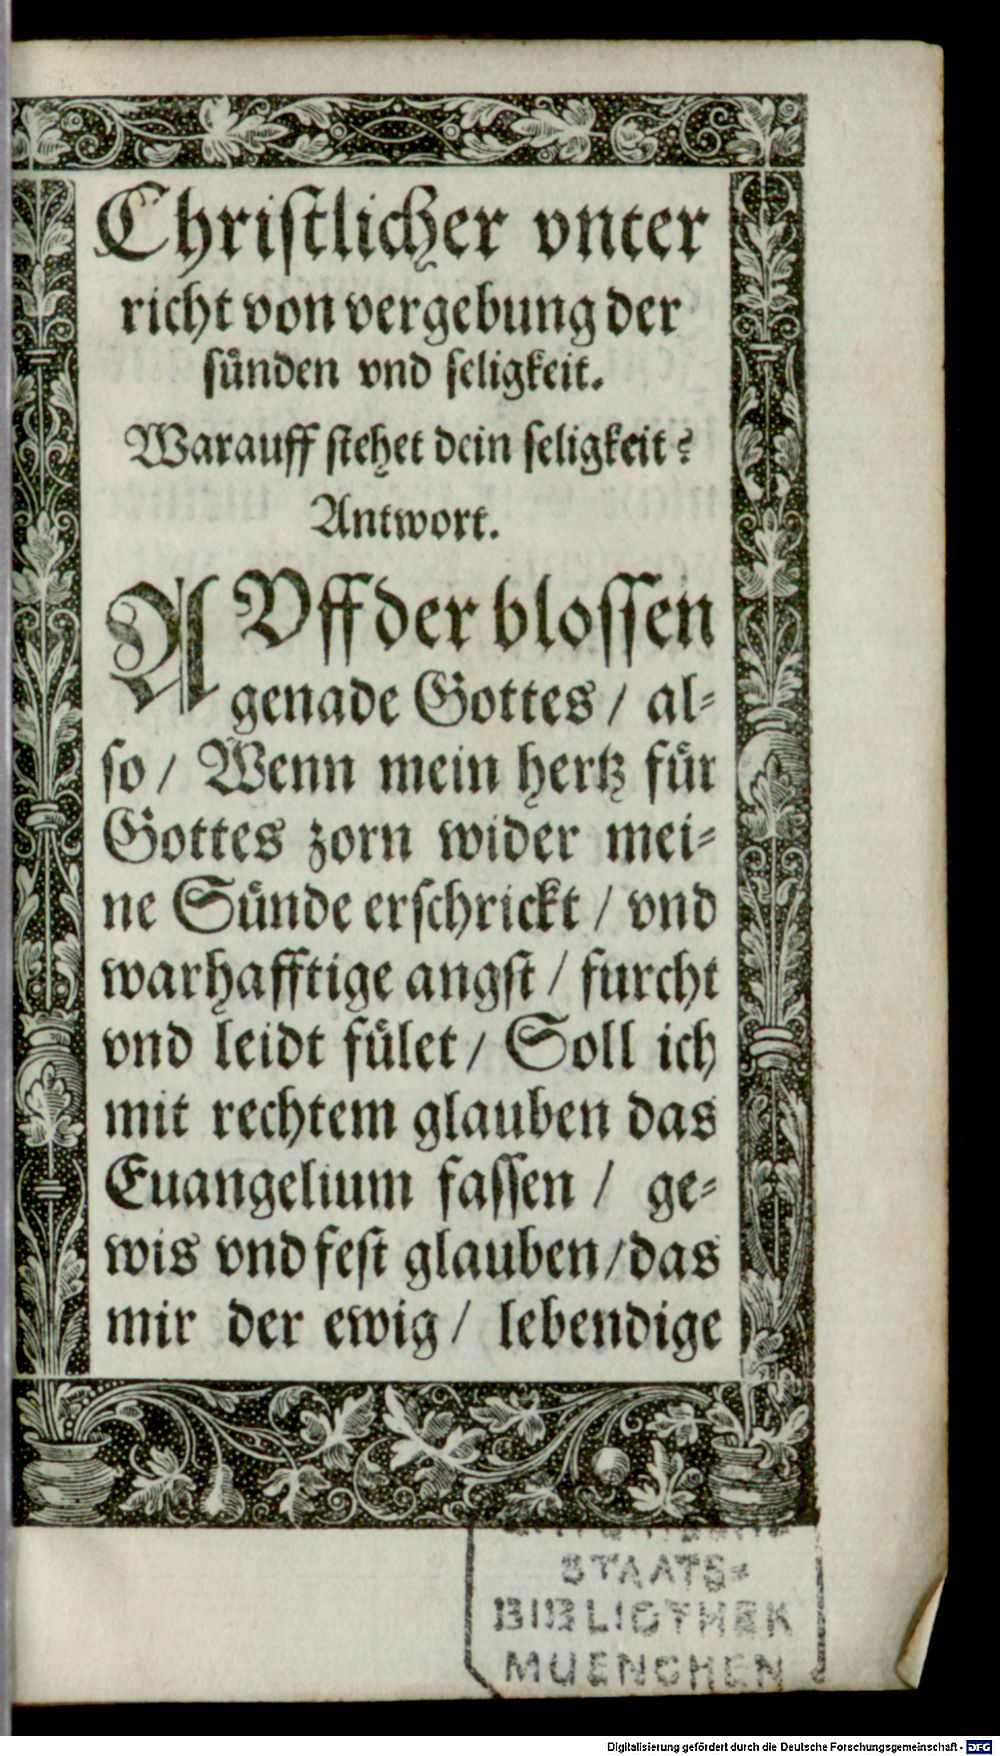 Christlicher vnter
richt von vergebung der
sünden vnd seligkeit.
Warauff stehet dein seligkeit?
Antwort.
AVff der blossen
genade Gottes / al-
so / Wenn mein hertz für
Gottes zorn wider mei-
ne Sünde erschrickt / vnd
warhafftige angst / furcht
vnd leidt fület / Soll ich
mit rechtem glauben das
Euangelium fassen / ge-
wis vnd fest glauben / das
mir der ewig / lebendige
STAATS-
BIBLIOTHEK
MUENCHEN
Digitalisierung gefördert durch die Deutsche Forschungsgemeinschaft - DFG